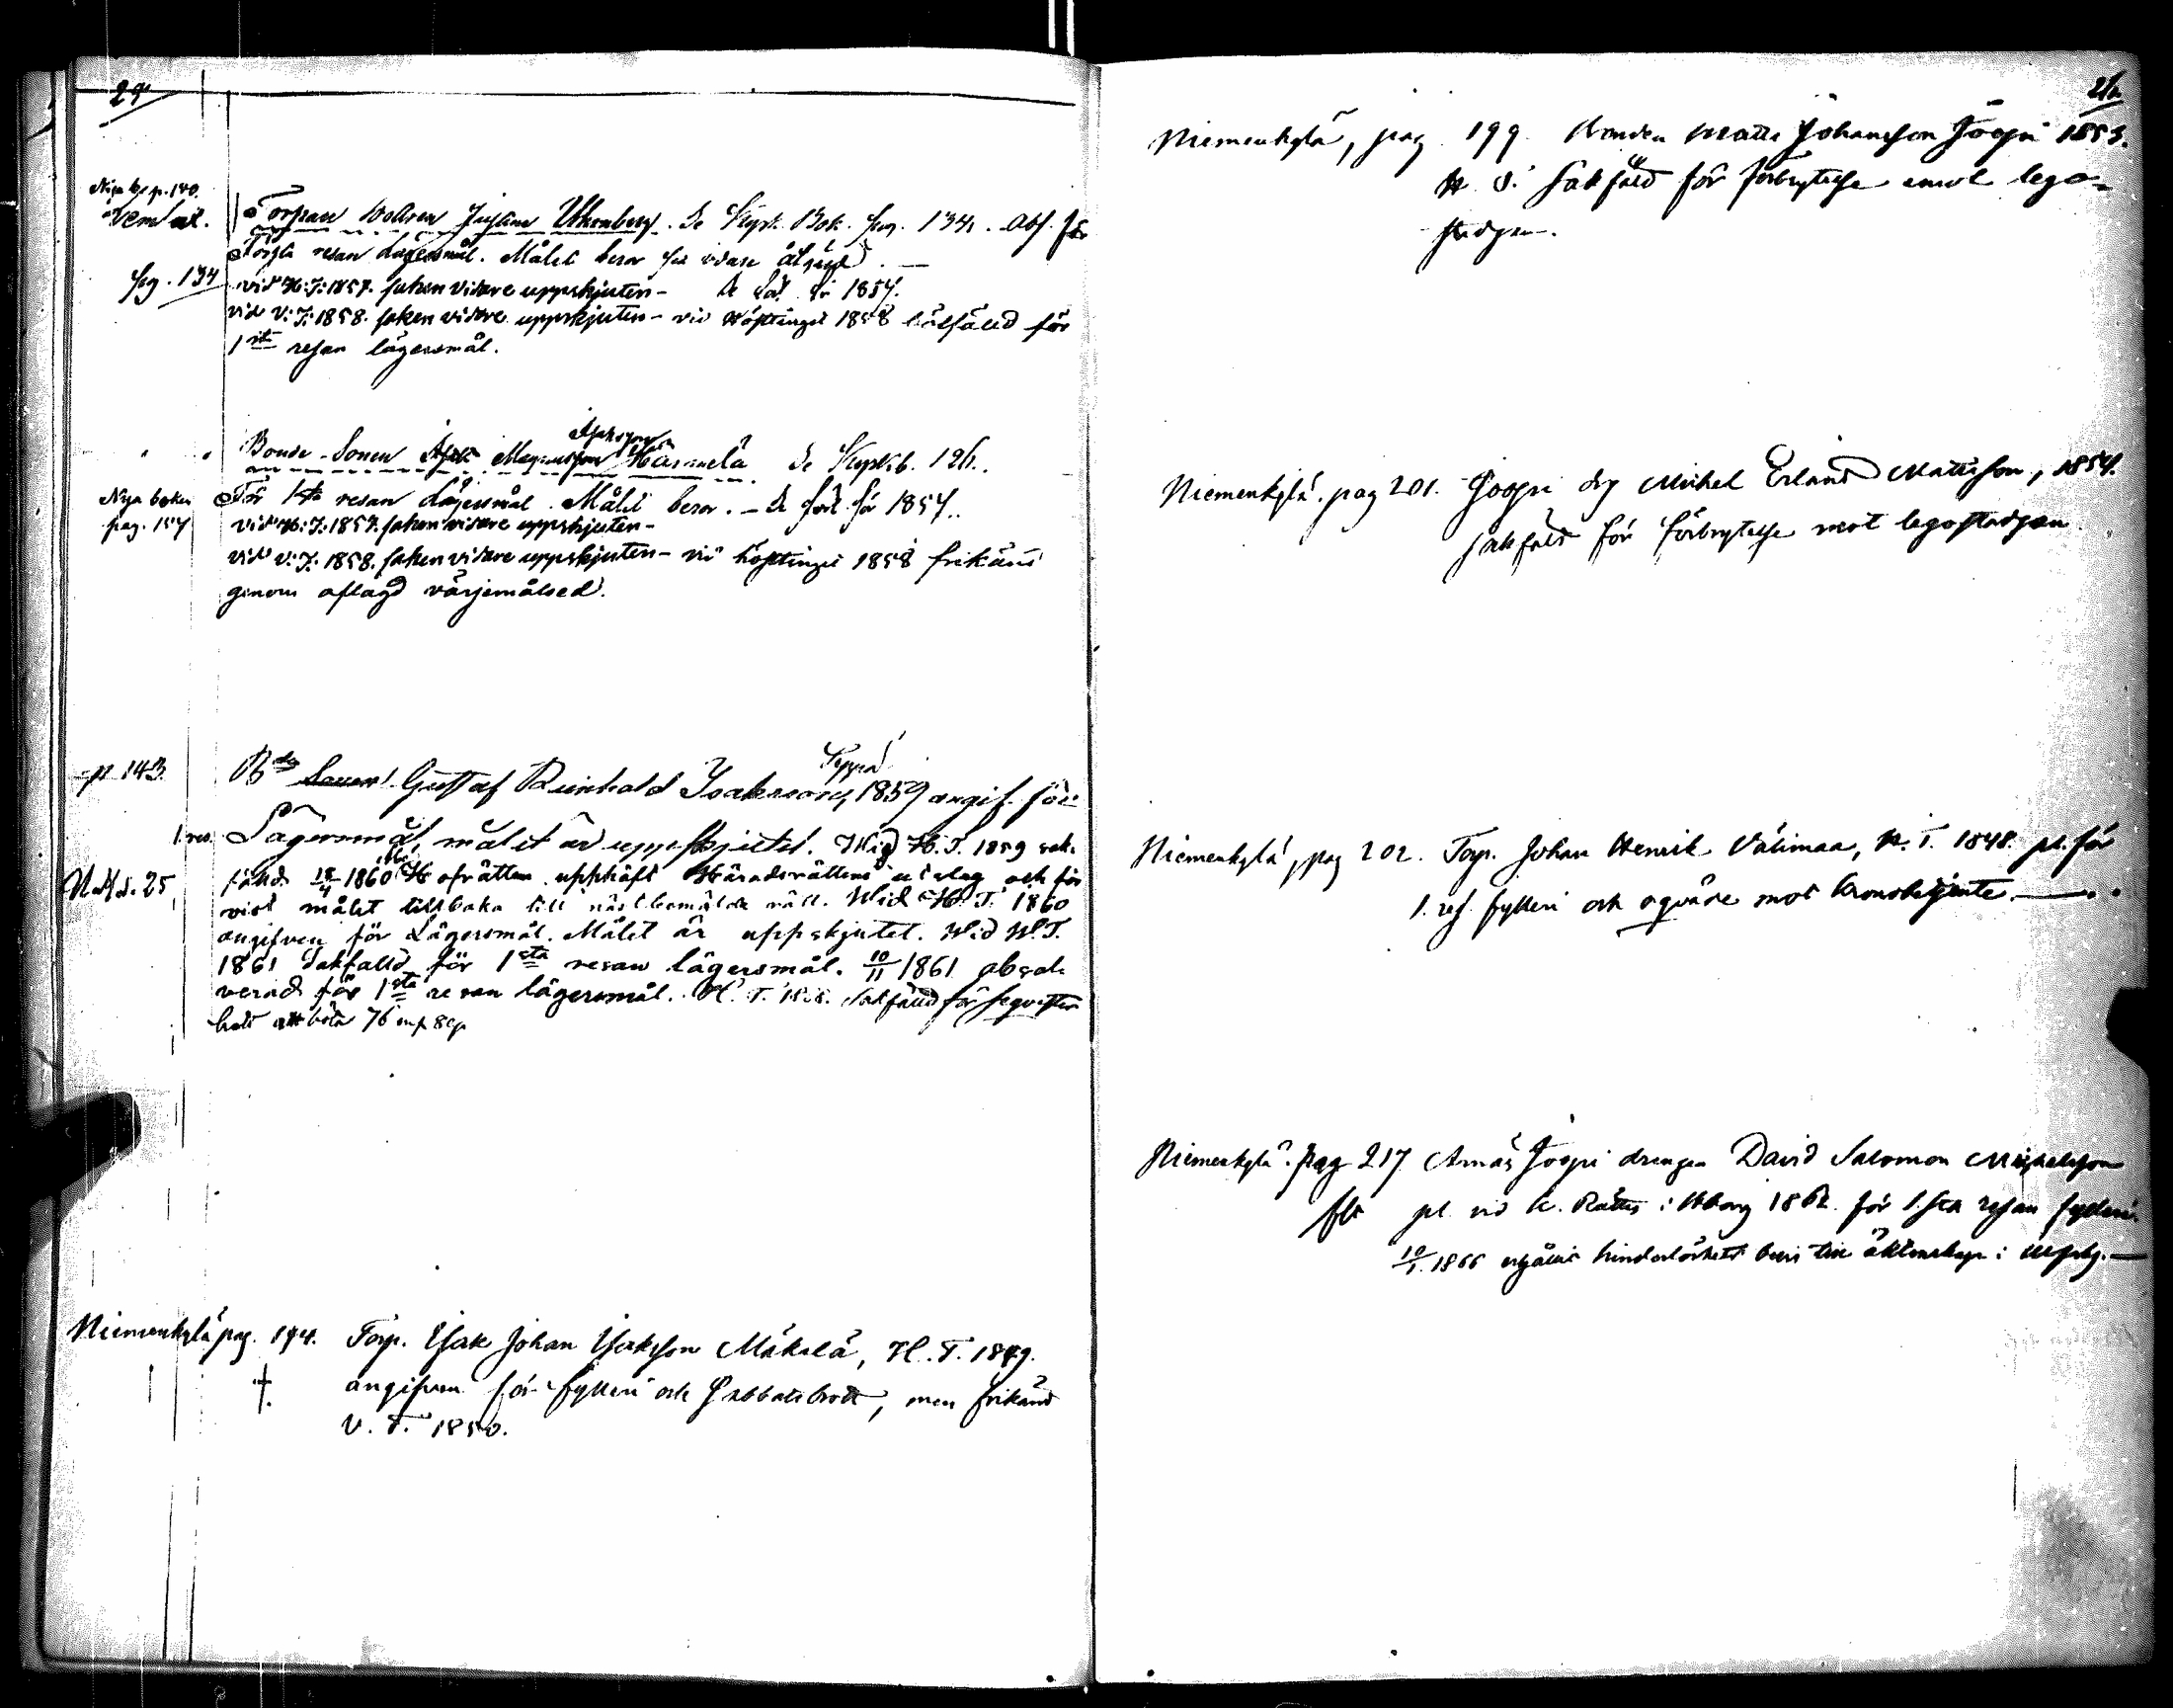 24
Nya b. p. 140.
Torpare dottren Justina Uhrenberg. Se Kyrk. Bok. pag. 134. Abs. för
Första resan Lägersmål. Målet beror på vidare åtgärd. —
pag. 134 vid H:T: 1857. saken vidare uppskjuten — 1857.
vid V:T: 1858. saken vidare uppskjuten — vid Hösttinget 1858 sakfälld för
1sta resan lägersmål.
Isaksson
Bonde-Sonen Magnusson Se Kyrkb. 126.
Nya boken För 1sta resan Lägersmål. Målet beror. — 1857.
pag. 157 vid H:T: 1857. saken vidare uppskjuten —
vid V:T: 1858. saken vidare uppskjuten — vid hösttinget 1858 frikänd
genom aflagd värjemålsed.
Seppä
p. 143. Gustaf Reinhold Isaksson, 1859 angif. för
1 res. Lägersmål, målet är uppskjutet. Wid H. T. 1859 sak-
fälld. 18/4 1860 Hofrätten upphäft Häradsrättens utslag och för
vist målet tillbaka till näst bemälde rätt. Wid H. T. 1860
angifven för Lägersmål. Målet är uppskjutet. Wid W.T.
1861 sakfälld för 1sta resan lägersmål. 10/11 1861 absol-
verad för 1sta resan lägersmål. H. T. sakfälld för
att böta 76 mk 8 cp
Niemenkylä pag. 194. Torp. Isak Johan Isaksson Mäkelä, H. T. 1849.
† angifven för fylleri och Sabbatsbrott, men frikänd
V. T. 1850.
Niemenkylä, pag. 199. Bonden Matts Johansson Joopi 1853.
H. T. Sakfäld för förbrytelse emot lego-
stadgan.
Niemenkylä. pag 201. Joopi dg Mickel Erland Mattsson, 1854.
sakfäld för förbrytelse mot legostadgan.
Niemenkylä, pag 202. Torp. Johan Henrik Välimaa, H. T. 1848. pl. för
1. res. fylleri och oqväde mot kronobetjente. —
Niemenkylä. pag 217 Arnäs Joopi drengen David Salomon Michelsson
pl. vid R. Rätten i 1862. för 1.sta resan fylleri.
10/1. 1866 erhållit hinderlöshets bevis till äktenskap i —